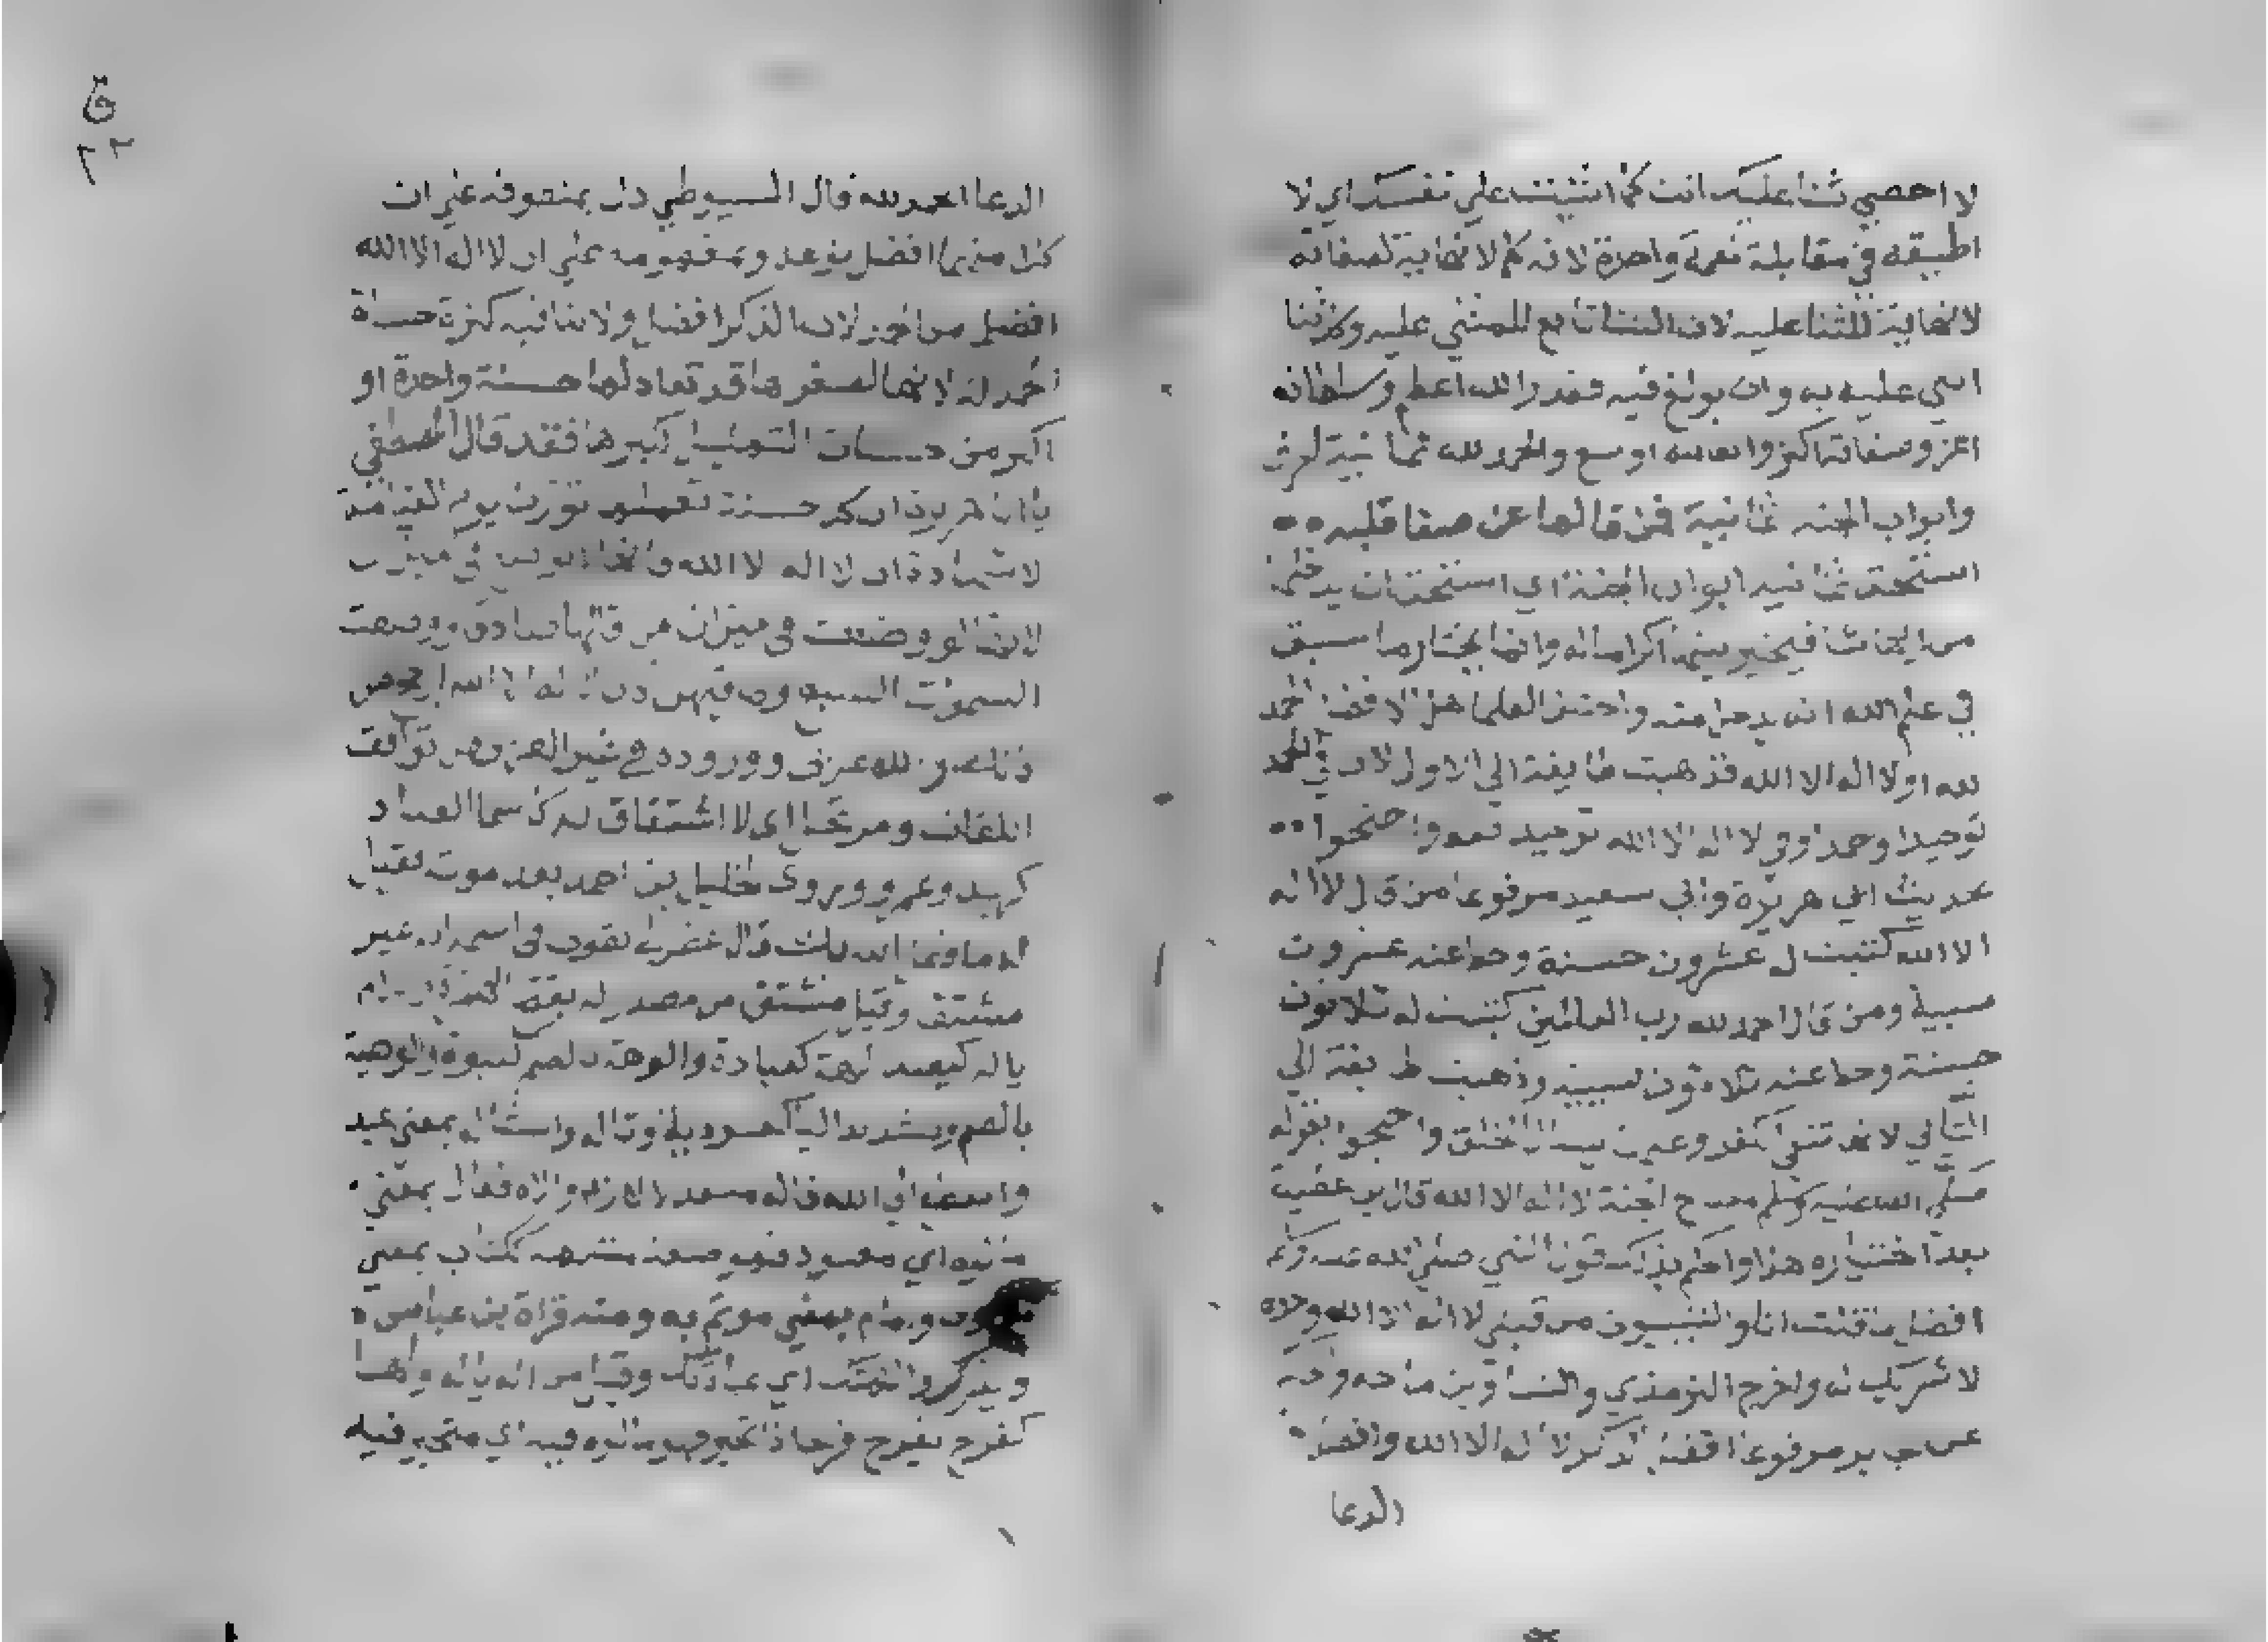 لا احصي ثنا عليك انت كما اثنيت علي نفسك اي لا
اطيقه في مقابلة نعمة واحدة لانه كما لا نهاية لصفاته
لا نهاية للثنا عليه لان الثنا تابع للمثني عليه وكل ثنا
اثني عليه به وان بولغ فيه فقدر الله اعظم وسلطانه
اعز وصفاته اكثر اوسع والحمد لله ثمانية احرف
وابواب الجنة ثمانية فمن قالها عن صفا قلبه
استحق ثمانية ابواب الجنة اي استحق ان يدخلها
من ايها شا فيخير بينها اكراما له وانما يختار ما سبق
في علم الله انه يدخل منه واختلف العلما هل الافضل الحمد
لله او لا اله الا الله فذهبت طايفة الي الاول لان في الحمد
توحيدا وحمدا وفي لا اله الا الله توحيد فقط واحتجوا
حديث ابي هريرة وابي سعيد مرفوعا من قال لا اله
الا الله كتبت له عشرون حسنة وحط عنه عشرون
سيية ومن قال الحمد لله رب العالمين كتبت له ثلاثون
حسنة وحط عنه ثلاثون سيية وذهبت طايفة الي
الثاني لانها تنفي الكفر وعنها يسال الخلق واحتجوا بقوله
صلي الله عليه وسلم مفتاح الجنة لا اله الا الله قال ابن عطية
بعد اختياره هذا والحكم بذلك قول النبي صلي الله عليه وسلم
افضل ما قلت انا والنبيون من قبلي لا اله الا الله وحده
لا شريك له واخرج الترمذي والنسا وبن ماجه
عن جابر مرفوعا افضل الذكر لا اله الا الله وافضل
الدعا
الدعا الحمد لله قال السيوطي دل بمنطوقه علي ان
كلا منهما افضل نوعه وبمفهومه علي ان لا اله الا الله
افضل من الحمد لان الذكر افضل ولا ينافيه كثرة حسنات
الحمد له لانها لصغرها قد تعادلها حسنة واحدة او
اكثر من حسنات التهليل لكبرها فقد قال المصطفي
يا ابا هريرة ان كل حسنة تعملها توزن يوم القيامة
لا شهادة ان لا اله الا الله فانها لا توضع في ميزان
لانها لو وضعت في ميزان من قالها صادقا ووضعت
السموات السبع وما فيهن كان لا اله الا الله ارجح من
ذلك لله عربي ووروده في غير العربي من توافق
اللغات ومرتجل اي لا اشتقاق له كاسما العباد
كزيد وعمرو وروي الخليل بن احمد بعد موته فقيل
له ما فعل الله بك قال غفر لي بقولي في اسمه انه غير
مشتق وقيل مشتق من مصدر اله بفتح
ياله كيعبد الهة كعبادة والوهة بالضم كنبوة والوهية
بالضم وتشديد اليا كعبودية وتاله واستاله بمعني عبد
بمعني
اي معبود فهو صفة مشبهة ككتاب بمعني
وامام بمعني موتم به ومنه قراة بن عباس
ويذرك والهتك اي عبادتك وقيل من اله ياله الها
كفرح يفرح فرحا اذا تحير فهو مالوه فيه اي متحير فيه